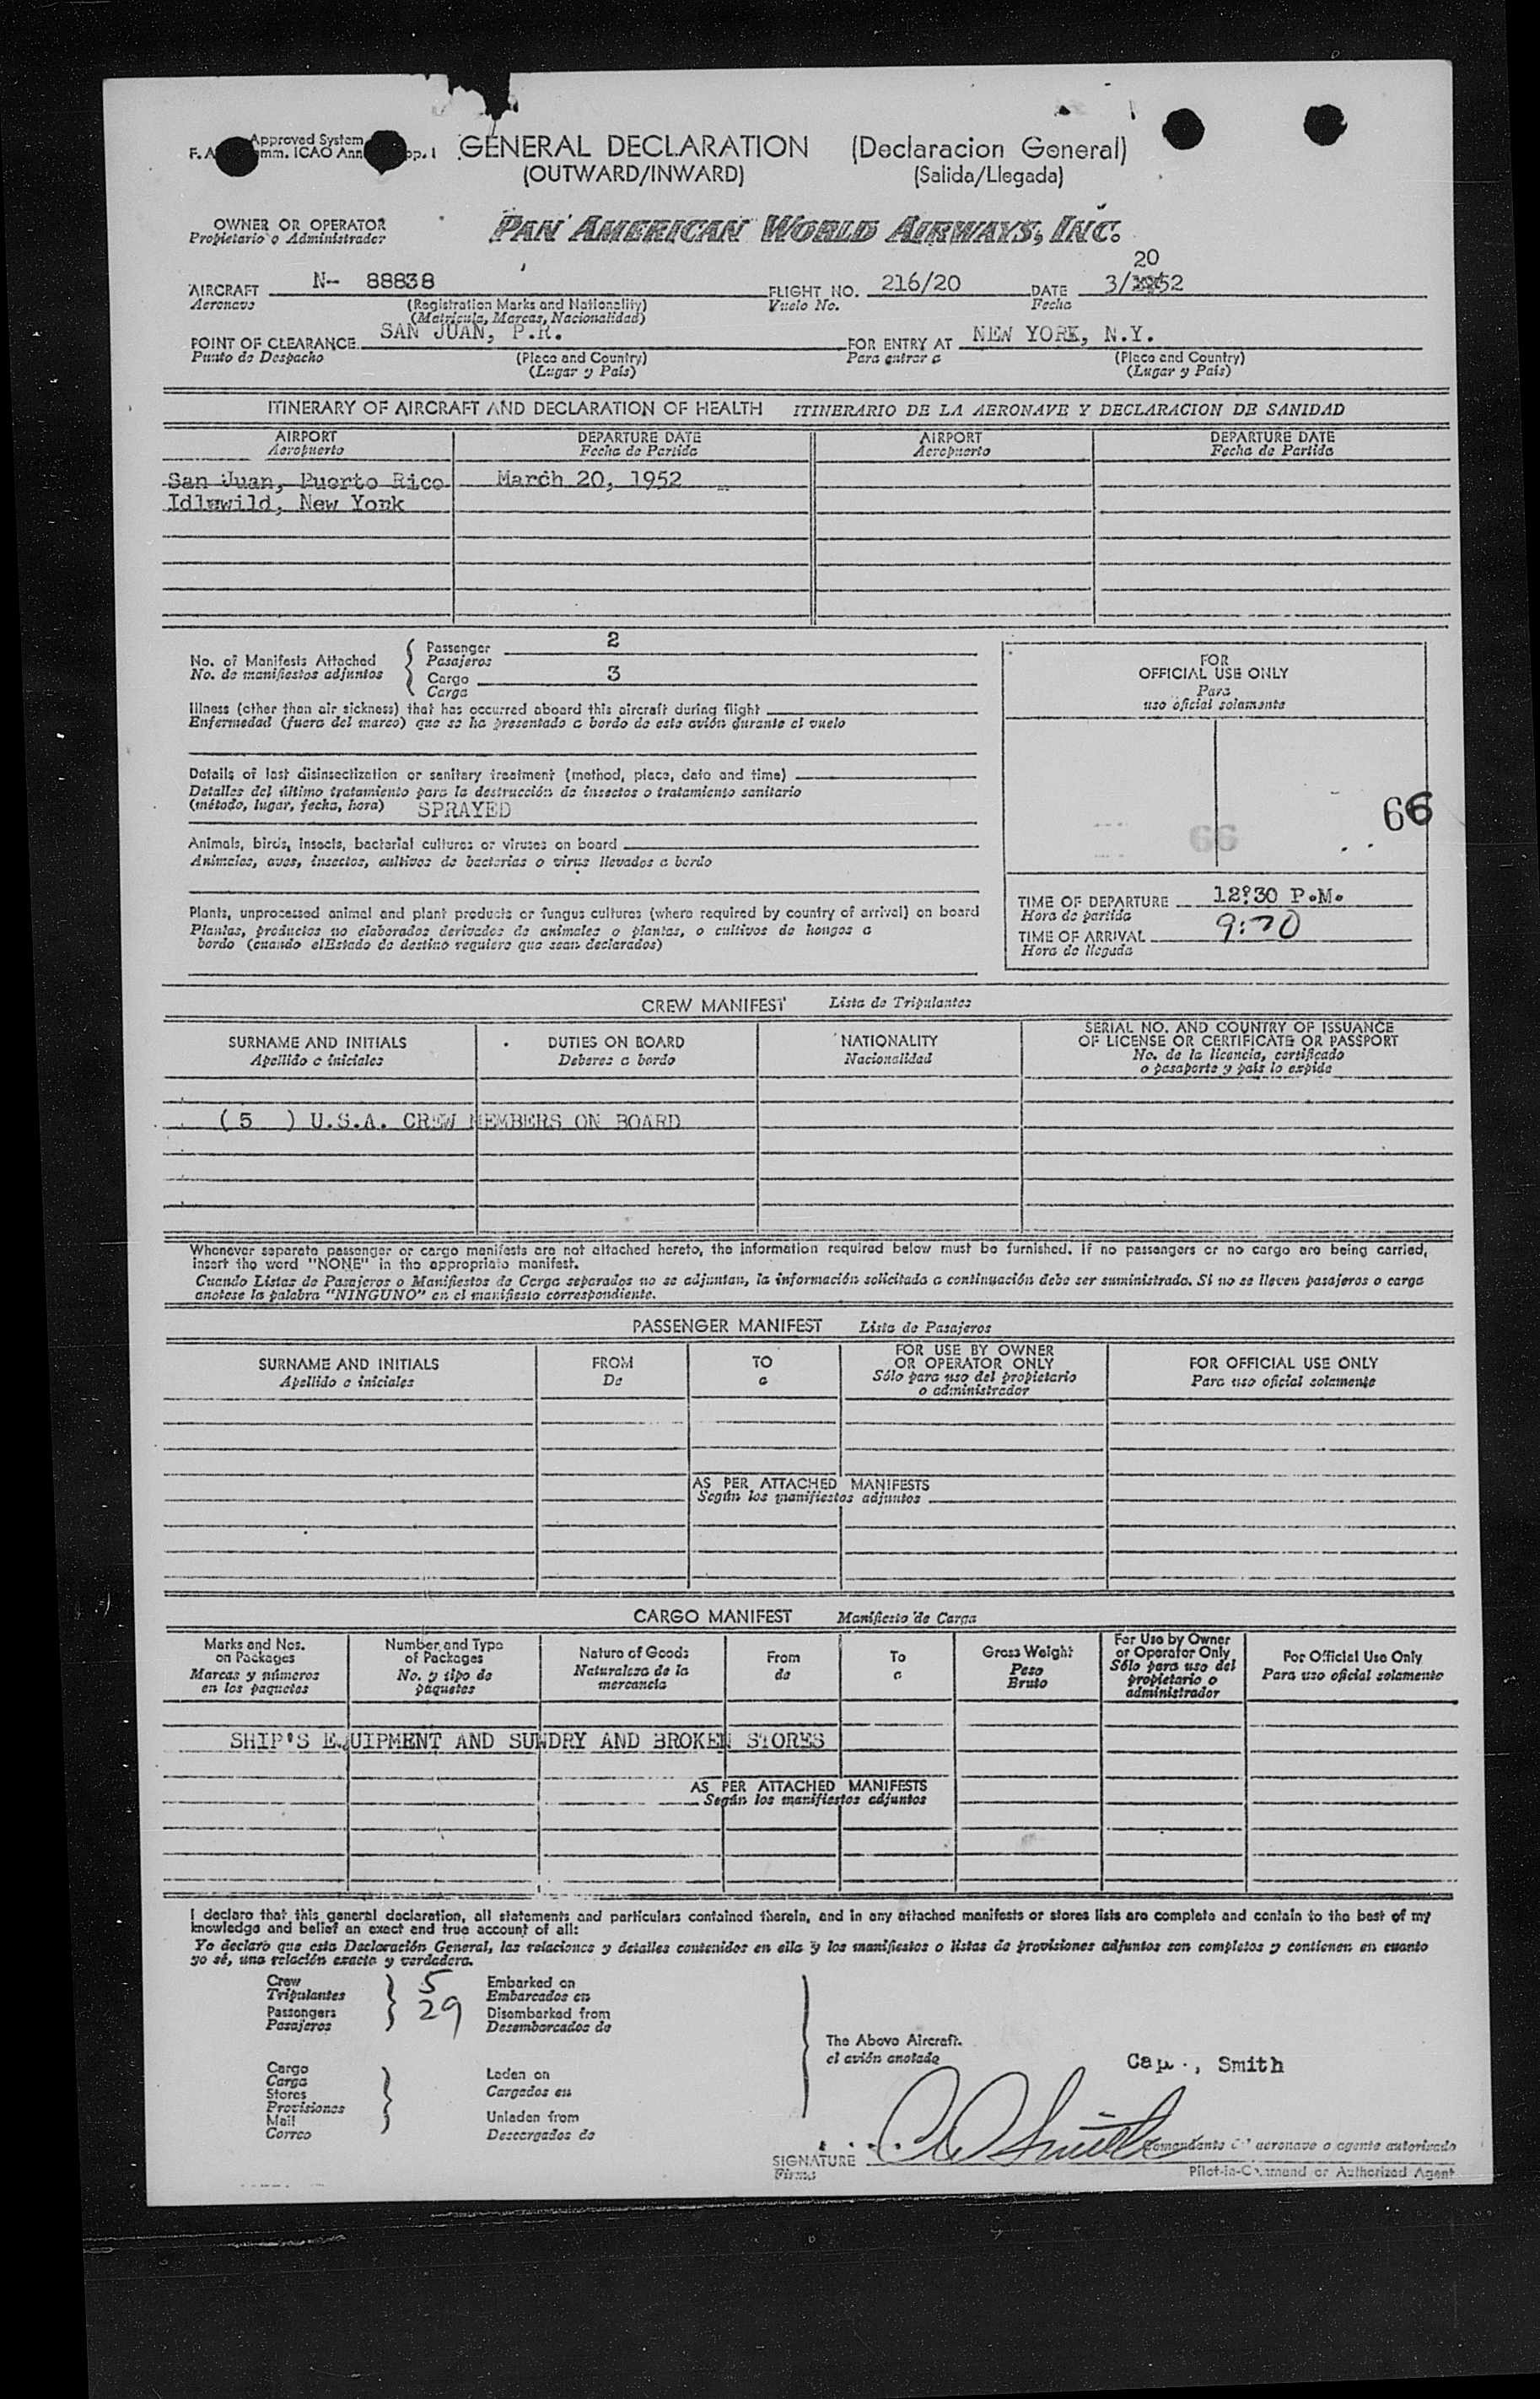 Approved System
F. A mm. ICAO Ann pp. 1
GENERAL DECLARATION (Declaracion General)
(OUTWARD/INWARD) (Salida/Llegada)
OWNER OR OPERATOR
Propietario o Administrador
PAN AMERICAN WORLD AIRWAYS, INC.
20
AIRCRAFT N- 88838 FLIGHT NO. 216/20 DATE 3/ 52
Aeronave (Registration Marks and Nationality) Vuelo No. Fecha
(Matricula, Marcas, Nacionalidad)
POINT OF CLEARANCE SAN JUAN, P.R. FOR ENTRY AT NEW YORK, N.Y.
Punto de Despacho (Place and Country) Para entrar a (Place and Country)
(Lugar y Pais) (Lugar y Pais)
ITINERARY OF AIRCRAFT AND DECLARATION OF HEALTH ITINERARIO DE LA AERONAVE Y DECLARACION DE SANIDAD
AIRPORT DEPARTURE DATE AIRPORT DEPARTURE DATE
Aeropuerto Fecha de Partida Aeropuerto Fecha de Partida
San Juan, Puerto Rico March 20, 1952
Idlewild, New York
No. of Manifests Attached
No. de manifiestos adjuntos
Passenger 2
Pasajeros
Cargo 3
Carga
Illness (other than air sickness) that has occurred aboard this aircraft during flight
Enfermedad (fuera del mareo) que se ha presentado a bordo de este avión durante el vuelo
Details of last disinsectization or sanitary treatment (method, place, date and time)
Detalles del último tratamiento para la destrucción de insectos o tratamiento sanitario
(método, lugar, fecha, hora) SPRAYED
Animals, birds, insects, bacterial cultures or viruses on board
Animales, aves, insectos, cultivos de bacterias o virus llevados a bordo
Plants, unprocessed animal and plant products or fungus cultures (where required by country of arrival) on board
Plantas, productos no elaborados derivados de animales o plantas, o cultivos de hongos a
bordo (cuando elEstado de destino requiere que sean declarados)
FOR
OFFICIAL USE ONLY
Para
uso oficial solamente
66
66
TIME OF DEPARTURE 12:30 P.M.
Hora de partida
TIME OF ARRIVAL
Hora de llegada
CREW MANIFEST Lista de Tripulantes
SURNAME AND INITIALS DUTIES ON BOARD NATIONALITY SERIAL NO. AND COUNTRY OF ISSUANCE
OF LICENSE OR CERTIFICATE OR PASSPORT
Apellido e iniciales Deberes a bordo Nacionalidad No. de la licencia, certificado
o pasaporte y pais lo expide
( 5 ) U.S.A. CREW MEMBERS ON BOARD
Whenever separate passenger or cargo manifests are not attached hereto, the information required below must be furnished. If no passengers or no cargo are being carried,
insert the word "NONE" in the appropriate manifest.
Cuando Listas de Pasajeros o Manifiestos de Carga separados no se adjuntan, la información solicitada a continuación debe ser suministrada. Si no se lleven pasajeros o carga
anotese la palabra "NINGUNO" en el manifiesto correspondiente.
PASSENGER MANIFEST Lista de Pasajeros
SURNAME AND INITIALS FROM TO FOR USE BY OWNER
OR OPERATOR ONLY FOR OFFICIAL USE ONLY
Apellido e iniciales De a Sólo para uso del propietario
o administrador Para uso oficial solamente
AS PER ATTACHED MANIFESTS
Según los manifiestos adjuntos
CARGO MANIFEST Manifiesto de Carga
Marks and Nos.
on Packages
Marcas y números
en los paquetes
Number and Type
of Packages
No. y tipo de
paquetes
Nature of Goods
Naturaleza de la
mercancia
From
de
To
a
Gross Weight
Peso
Bruto
For Use by Owner
or Operator Only
Sólo para uso del
propietario o
administrador
For Official Use Only
Para uso oficial solamente
SHIP'S EQUIPMENT AND SUNDRY AND BROKEN STORES
AS PER ATTACHED MANIFESTS
Según los manifiestos adjuntos
I declare that this general declaration, all statements and particulars contained therein, and in any attached manifests or stores lists are complete and contain to the best of my
knowledge and belief an exact and true account of all:
Yo declaro que esta Declaración General, las relaciones y detalles contenidos en ella y los manifiestos o listas de provisiones adjuntos son completos y contienen en cuanto
yo sé, una relación exacta y verdadera.
Crew 5 Embarked on
Tripulantes Embarcados en
Passengers 29 Disembarked from
Pasajeros Desembarcados de
The Above Aircraft.
el avión anotado
Cargo
Carga
Stores
Provisiones
Mail
Correo
Laden on
Cargados en
Unladen from
Descargados de
Cap., Smith
Smith
SIGNATURE
Firma
Comandante aeronave o agente autorizado
Pilot-in-Command or Authorized Agent